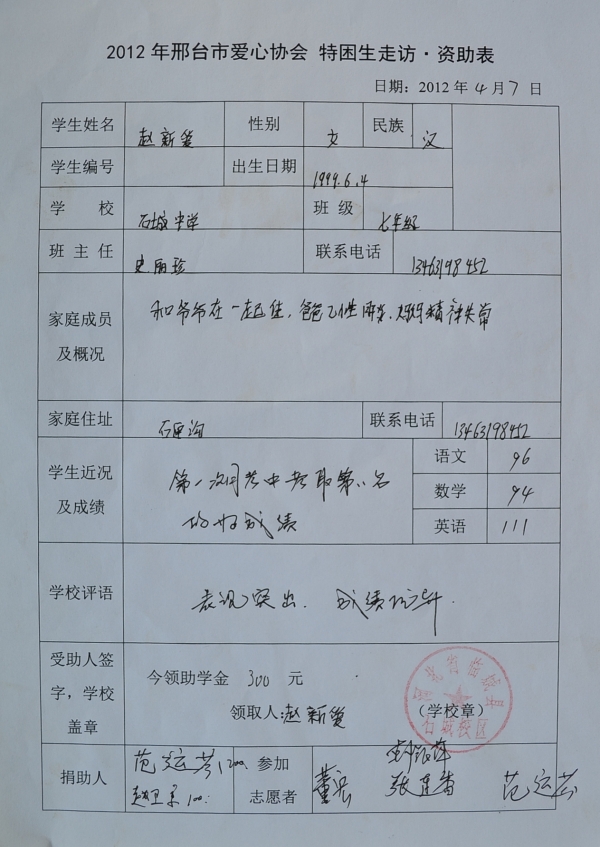 2012年邢台市爱心协会 特困生走访·资助表
日期：2012年4月7日
学生姓名 赵新爱 性别 女 民族 汉
学生编号 出生日期 1999.6.4
学 校 石城中学 班 级 七年级
班 主 任 史丽珍 联系电话 13463198452
家庭成员
及概况
和爷爷在一起住，爸爸乙肝，妈妈精神失常
家庭住址 石更沟 联系电话 13463198452
学生近况
及成绩
第一次月考中考取第八名
的好成绩
语文 96
数学 94
英语 111
学校评语
表现突出、成绩优异.
受助人签
字，学校
盖章
今领助学金 300 元
领取人:赵新爱
（学校章）
河北省临城县
石城校区
捐助人
范运芳 200.
赵卫 100.
参加
志愿者
董
张建
范运芳